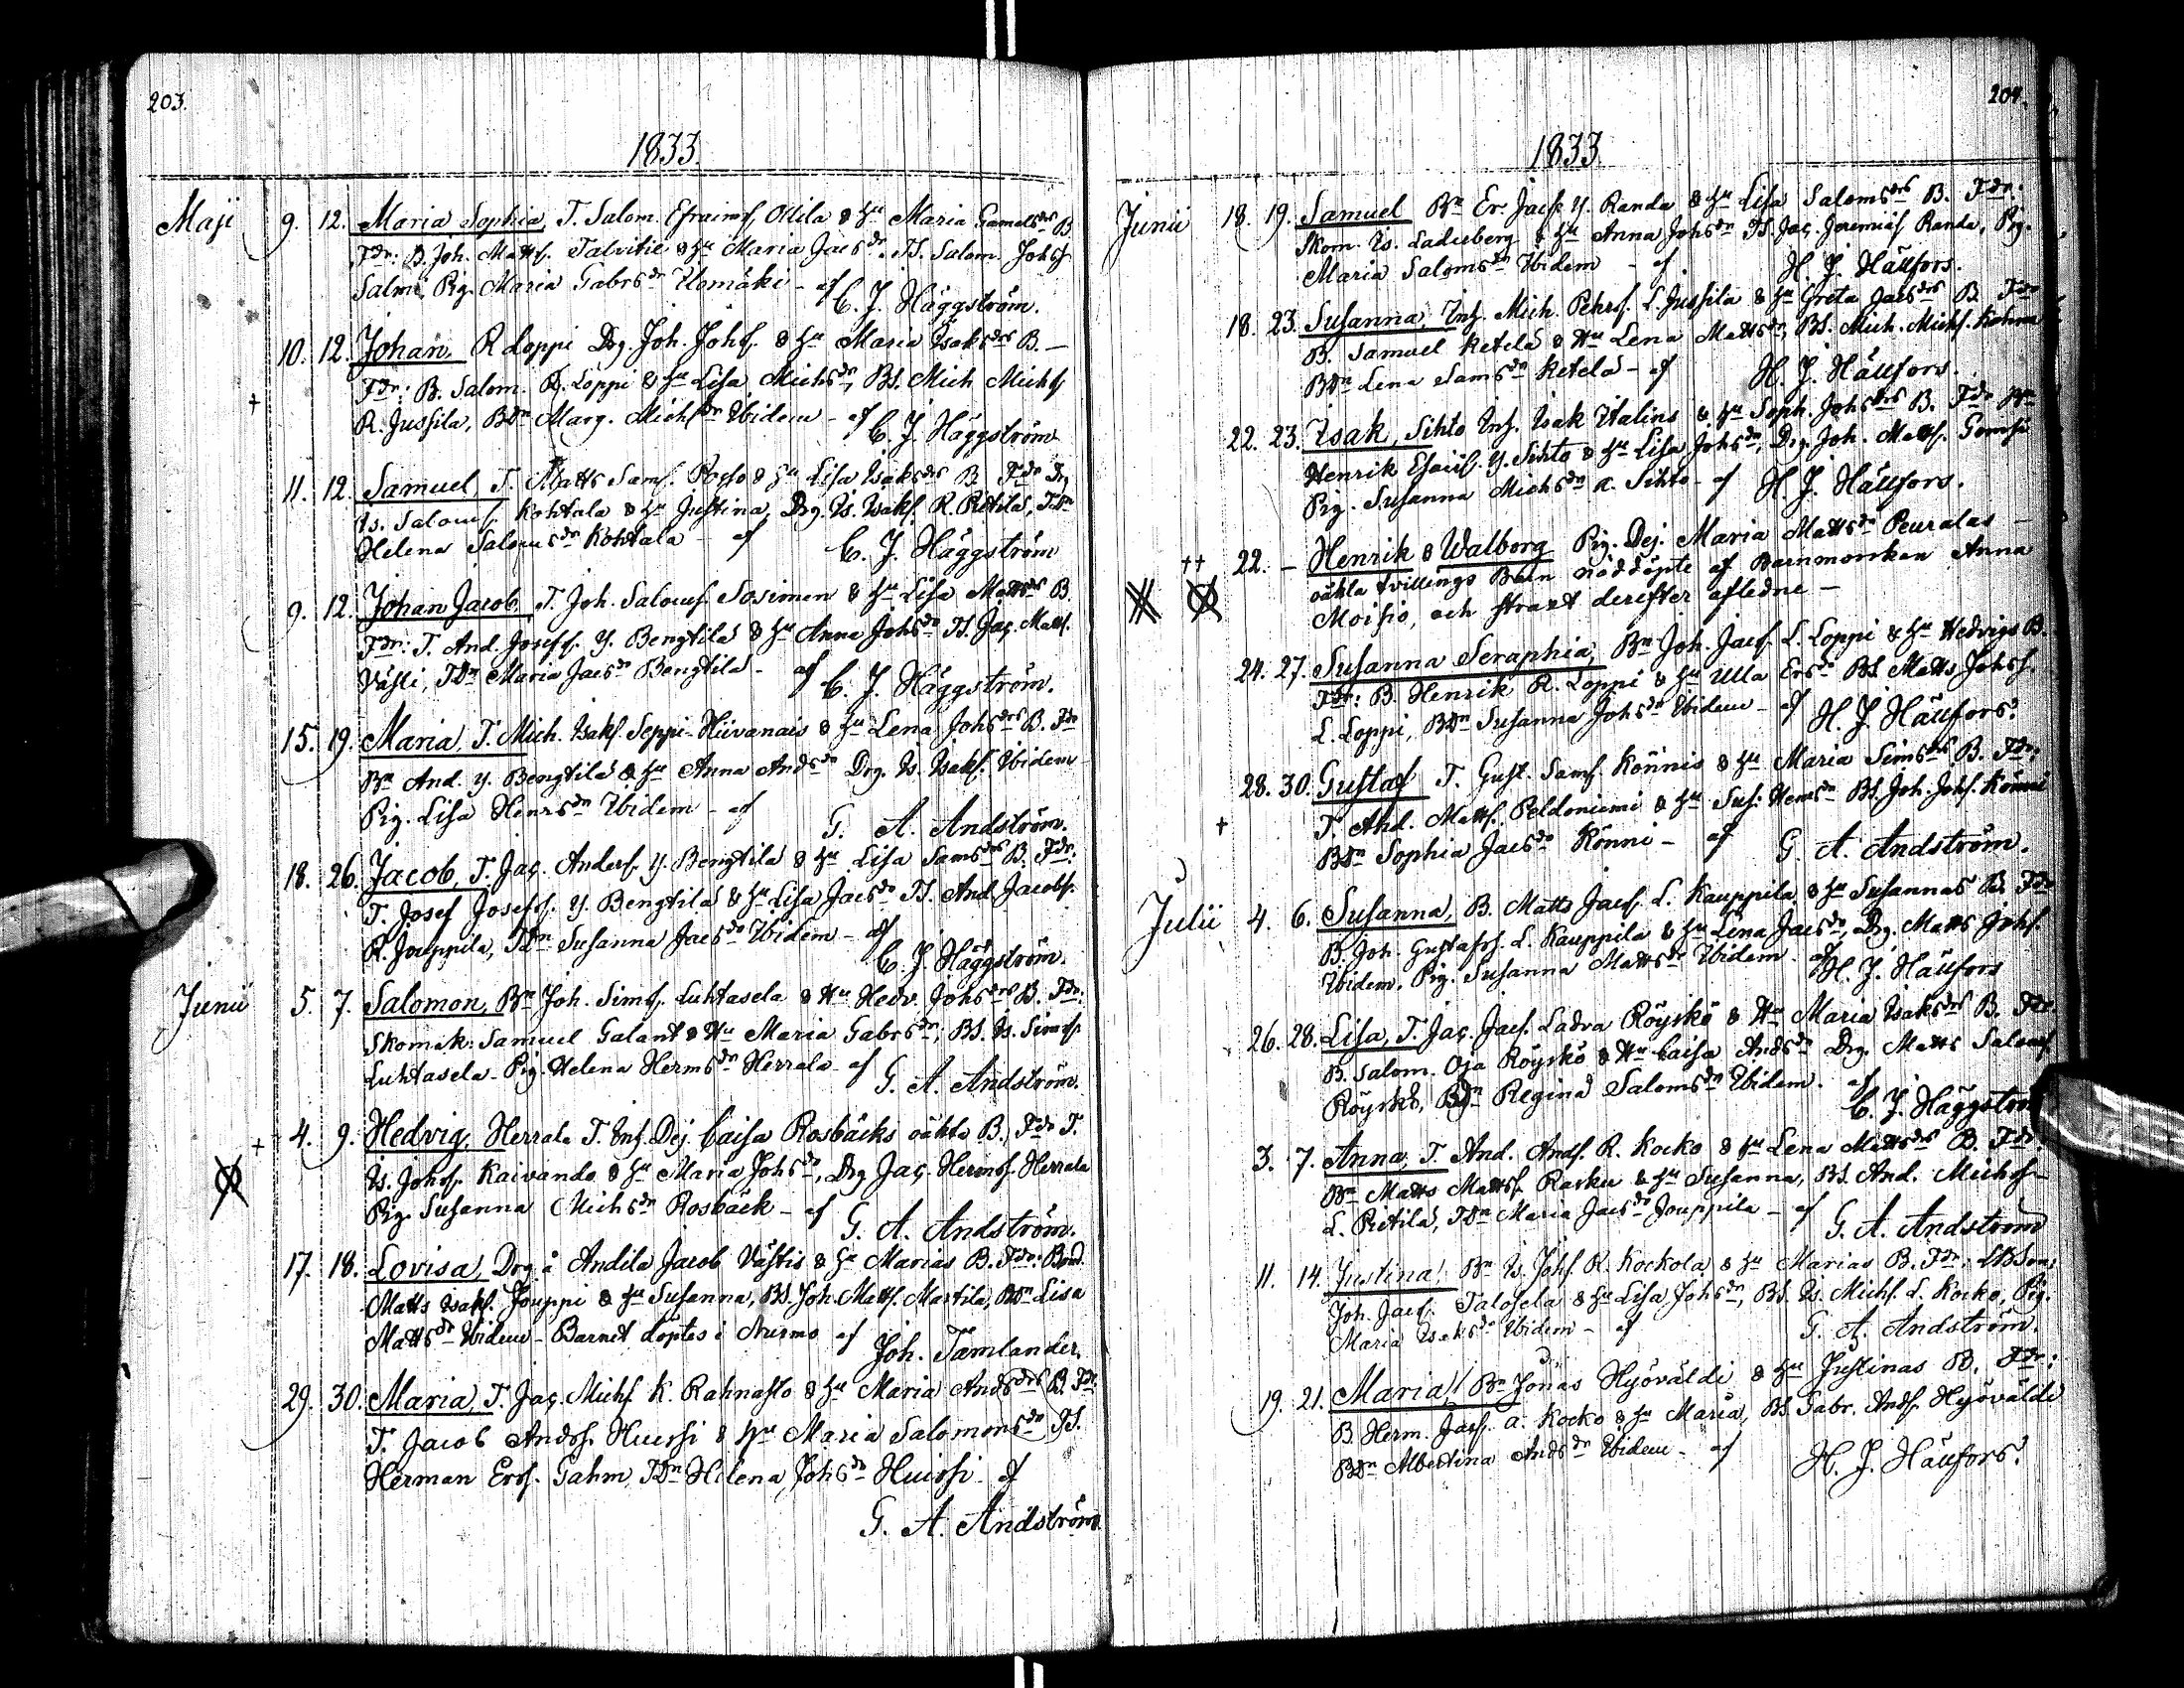 203.
1833.
Maji 9. 12. Maria Sophia, T. Salom. Efraimss. Ollila & Hu Maria Gamelsdrs B.
Fdr: B. Joh. Mattss. Talvitie & Hu Maria Jacsdr. TS. Salom. Johss.
Salmi, Pig. Maria Gabrsdr Ylomäki - af
C. J. Häggström.
10. 12. Johan R Loppi Drg. Joh. Johss. & Hu Maria Isaksdrs B. -
Fdr: B. Salom. R. Loppi & Hu Lisa Michsdr, BS. Mich Michss
+ R. Jussila, BDr Marg. Michsdr Ibidem - af
C. J. Häggström
11. 12. Samuel T. Matts Sams. & Hu Lisa Isaksdrs B. Fdr Drg
Is. Saloms. Kohtala & Hu Justina, Drg. Is. Isakss. R. Pitilä, TDr
Helena Salomsdr Kohtala - af
C. J. Häggström
9. 12. Johan Jacob, T. Joh. Saloms. Sosimen & Hu Lisa Mattsdrs B.
Fdr: T. And. Josefss. Y. Bengtilä & Hu Anna Johsdr TS. Jac. Matss.
Västi, TDr Maria Jacsdr Bengtilä - af
C. J. Häggström.
15. 19. Maria, T. Mich. Isakss. Seppi-Hiivanais & Hu Lena Johsdrs B. Fdr
Bn And. Y. Bengtilä & Hu Anna Andsdr Drg. Is. Isakss. Ibidem
Pig. Lisa Henrsdr Ibidem - af
G. A. Andström.
18. 26. Jacob, T. Jac. Anderss. Y. Bengtilä & Hu Lisa Samsdrs B. Fdr:
T. Josef Josefss. Y. Bengtilä & Hu Lisa Jacsdr TS. And. Jacobss.
R. Jouppila, TDr Susanna Jacsdr Ibidem - af
C. J. Häggström.
Junii 5. 7. Salomon, Bn Joh. Simss. Luhtasela & Hu Hedv. Johsdrs B. Fdr:
Skomak: Samuel Galant & Hu Maria Gabrsdr; BS. Is. Simss.
Luhtasela - Pig. Helena Hermsdr Herrala - af
G. A. Andström.
+ 4. 9. Hedvig, Herrala T. Inh. Dej. Caisa Rosbäcks oäkta B. Fdr T.
Is. Johss. Kaivando & Hu Maria Johsdr, Drg Jac. Hermss. Herrala
Pig. Susanna Michsdr Rosbäck - af
G. A. Andström.
17. 18. Lovisa, Drg å Andila Jacob Västis & Hu Marias B. Fdr: Bond.
Matts Isakss. Jouppi & Hu Susanna, BS. Joh. Matss. Martila, BDr Lisa
Mattsdr Ibidem - Barnet döptes i Nurmo af
Joh. Tämlander.
29. 30. Maria, T. Jac. Michss. K. Rahnasto & Hu Maria Andsdrs B. Fdr:
T. Jacob Andss. Huissi & Hu Maria Salomonsdr TS.
Herman Erss. Gahm, TDr Helena Johsdr Huissi - af
G. A. Andström
204.
1833.
Junii 18. 19. Samuel Bn Er. Jacss. Y. Randa & Hu Lisa Salomsdrs B. Fdr:
Skom. Is. Laduberg & Hu Anna Johsdr TS. Jac. Jeremiss Randa, Pig.
Maria Salomsdr Ibidem - af
H. J. Hällfors.
18. 23. Susanna, Inh. Mich. Pehrss. L. Jussila & Hu Greta Jacsdrs B. Fdr
B. Samuel Ketelä & Hu Lena Mattsdr, BS. Mich. Michss.
BDr Lena Samsdr Ketelä - af
H. J. Hällfors.
22. 23. Isak, Sihto Inh. Isak Italins & Hu Soph. Johsdrs B. Fdr Bn
Henrik Esaiss. Y. Sihto & Hu Lisa Johsdr, Drg. Joh. Mattss. Gomsi
Pig. Susanna Michsdr R. Sihto - af
H. J. Hällfors.
++ 22. - Henrik & Walborg Pig. Dej. Maria Mattsdr Peuralas -
oäkta tvillings Barn nöddöpte af Barnmorskan Anna
Moisio, och straxt derefter afledne -
24. 27. Susanna Seraphia, Bn Joh. Jacss. L. Loppi & Hu Hedvigs B.
Fdr: B. Henrik R. Loppi & Hu Ulla Ersdr BS. Matts Johss.
L. Loppi, BDr Susanna Johsdr Ibidem - af
H. J. Hällfors.
28. 30. Gustaf T. Gust. Samss. Könnis & Hu Maria Simsdrs B. Fdr:
+ T. And. Mattss. Peldoniemi & Hu Sus: Henrsdr BS. Joh. Johss. Könni
BDr Sophia Jacsdr Könni - af
G. A. Andström.
Julii 4. 6. Susanna, B. Matts Jacss. L. Kauppila & Hu Susannas B. Fdr
B. Joh. Gustafss. L. Kauppila & Hu Lena Jacsdr, Drg. Matts Johss.
Ibidem. Pig. Susanna Mattsdr Ibidem. af
H. J. Hällfors
26. 28. Lisa, T. Jac. Jacss. Ladva Röyskö & Hu Maria Isaksdrs B. Fdr
B. Salom. Oja Röyskö & Hu Caisa Andsdr Drg. Matts Salomss
Röyskö, BDr Regina Salomsdr Ibidem. af
C. J. Häggström
3. 7. Anna, T. And. Andss. R. Kocko & Hu Lena Mattsdrs B. Fdr
Bn Matts Mattss. Rasku & Hu Susanna, BS. And. Michss -
L. Pitilä, TDr Maria Jacsdr Jouppila - af
G. A. Andström
11. 14. Justina! Bn Is. Johss. R. Kockola & Hu Marias B. Fdr:
Joh. Jacss. Talosela & Hu Lisa Johsdr, BS. Is. Michss. L. Kocko, Pig.
Maria Isaksdr Ibidem - af
G. A. Andström.
19. 21. Maria! Bn Jonas Hyövälti & Hu Justinas B. Fdr:
B. Herm. Jacss. A. Kocko & Hu Maria, BS. Gabr. Andss. Hyöväldi
BDr Albertina Andsdr Ibidem - af
H. J. Hällfors.